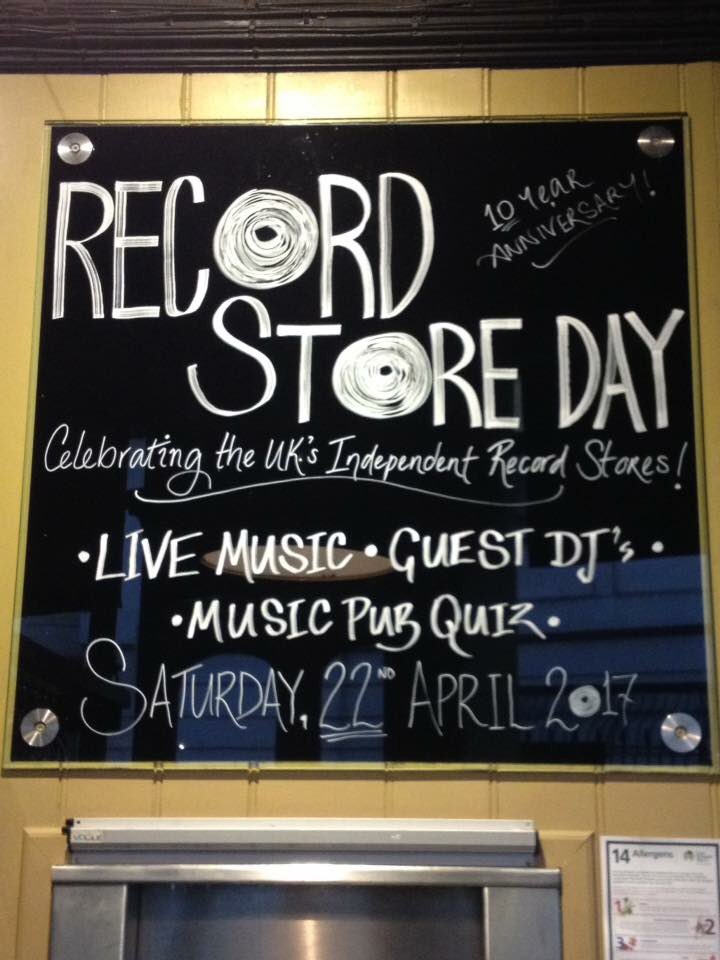 RECORD
10 YEAR
ANNIVERSARY!
STORE DAY
Celebrating the UK's Independent Record Stores!
• LIVE MUSIC • GUEST DJ's •
• MUSIC PUB QUIZ •
SATURDAY, 22ND APRIL 2017
VOGUE
14 Allergens
1
2
3